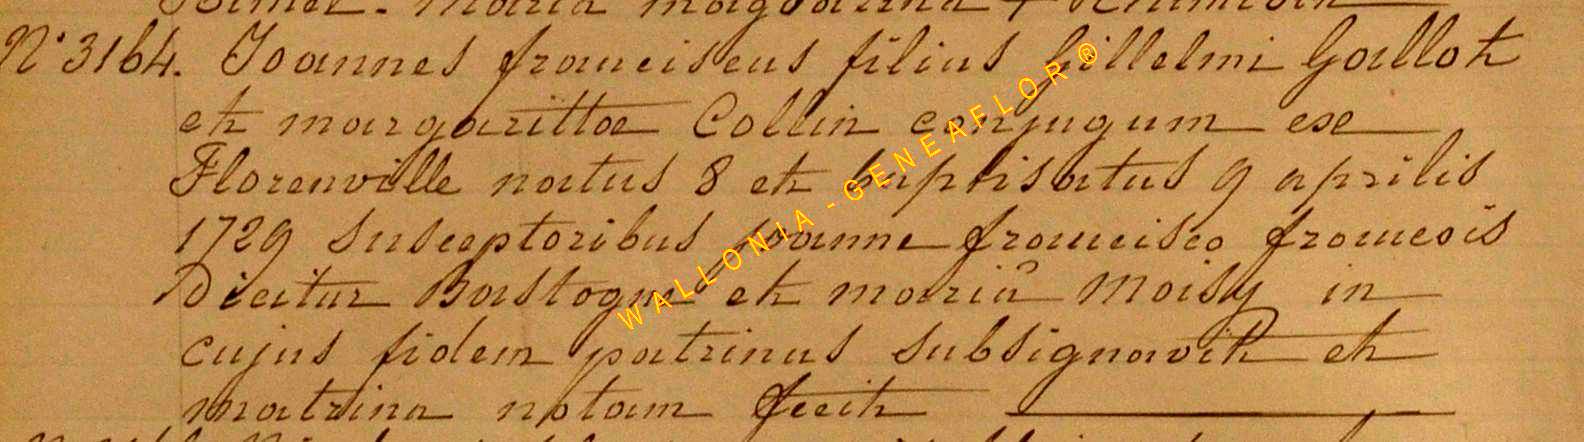 N° 3164. Joannes franciscus filius Gillelmi Gallot
et margarittae Collin conjugum ex
Florenville natus 8 et baptisatus 9 aprilis
1729 susceptoribus Joanne francisco francois
Dicitur Bastogne et mariâ Moisy in
cujus fidem patrinus subsignavit et
matrina notam fecit
WALLONIA - GENEAFLOR®